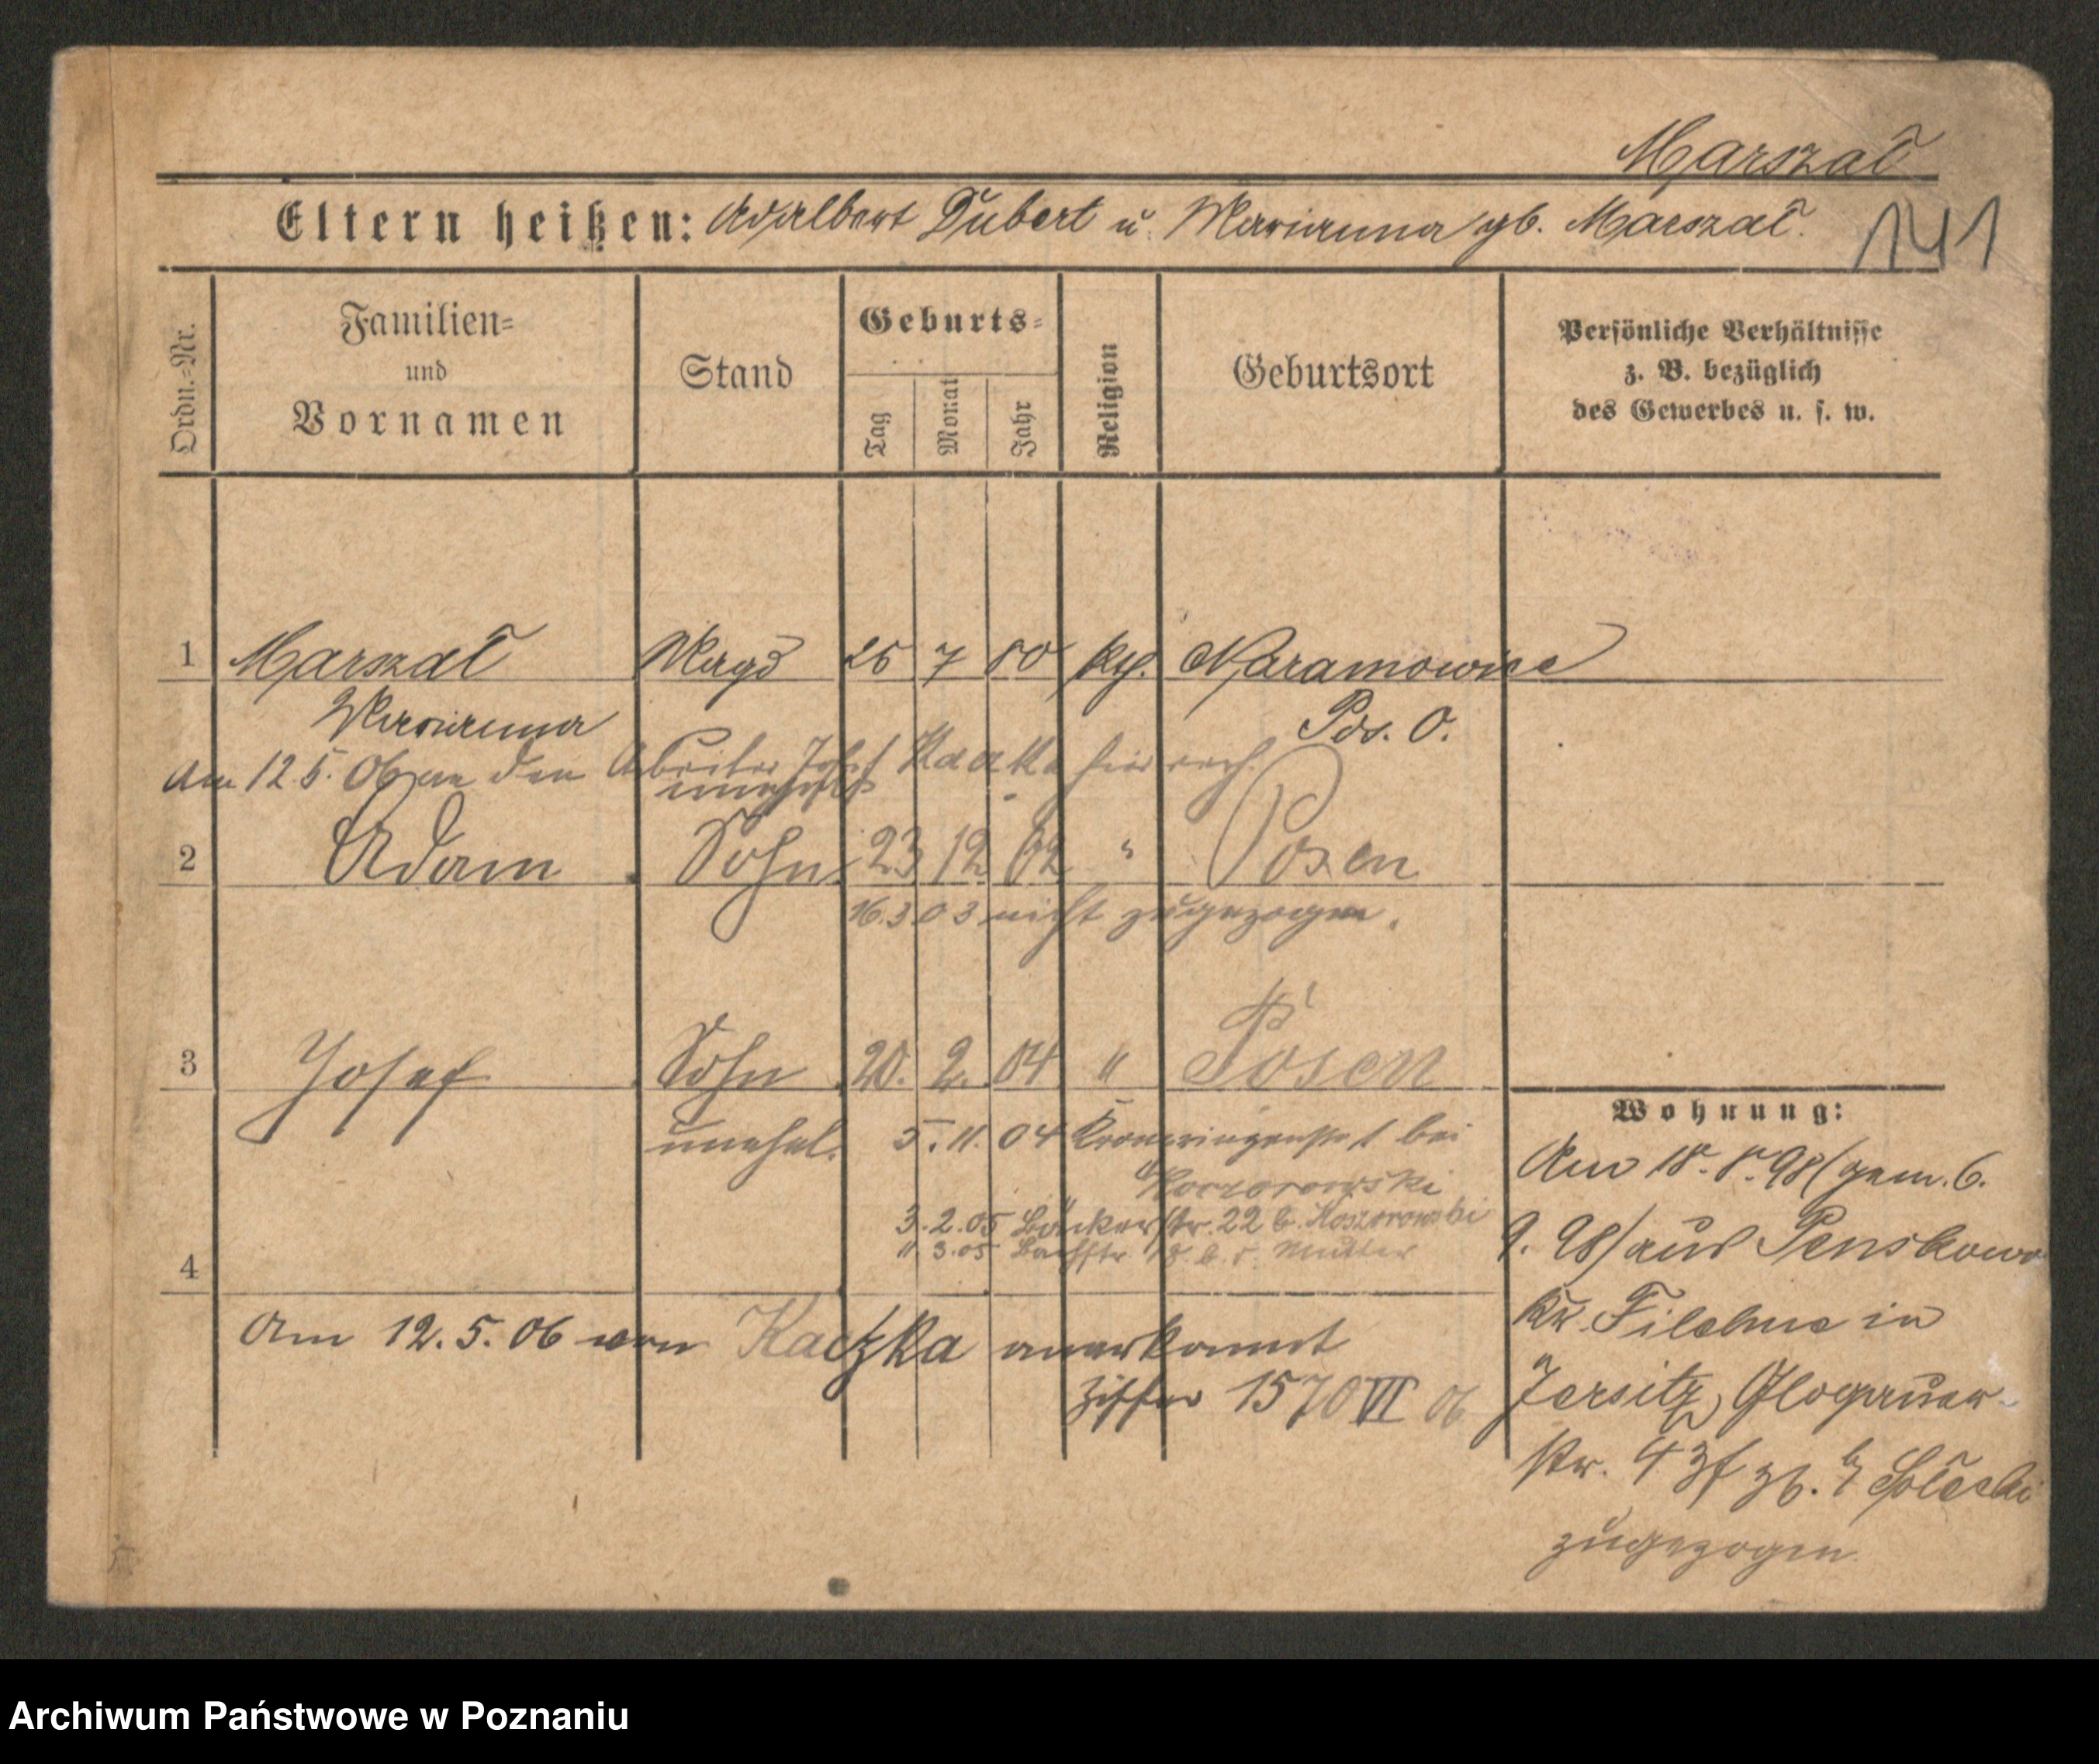 Marszal
Eltern heißen: Adalbert Dubert u. Marianna gb. Marszal.
141
Ordn.=Nr.
Familien=
und
Vornamen
Stand
Geburts=
Tag
Monat
Jahr
Religion
Geburtsort
Persönliche Verhältnisse
z. B. bezüglich
des Gewerbes u. s. w.
1 Marszal Magd 7 80 kth. Naramowice
Marianna Pos. O.
Am 12.5.06 an den Arbeiter Josef
unehel.
2 Adam Sohn 23 12 02 " Posen
16.3.03 nicht zugezogen.
3 Josef Sohn 20. 2. 04 " Posen
unehel. 5.11.04 Kronprinzenstr 1 bei
3.2.05 Bäckerstr. 22 b.
11.3.05 Bachstr. 18 b. d. Mutter
4
Am 12.5.06 von Kaczka anerkannt
Ziffer 1570 VI 06
Wohnung:
Am 18.8.98 (gem. 6.
9.98) aus Penskowo
Kr. Filehne in
Jersitz, Glogauer-
str.
zugezogen
Archiwum Państwowe w Poznaniu